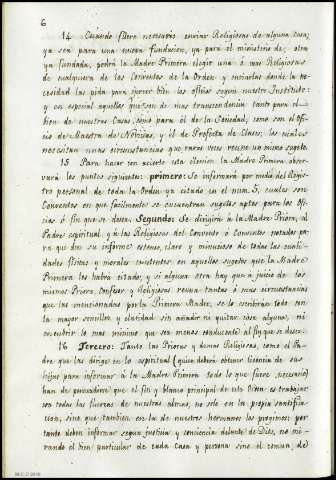 6
14 Cuando fuere necesario enviar Religiosas de alguna casa,
ya sea para una nueva fundacion, ya para el ministerio de otra
ya fundada, podrá la Madre Primera elegir una ó mas Religiosas
de cualquiera de los Conventos de la Orden y enviarlas donde la ne-
cesidad las pida para ejercer bien los oficios segun nuestro Instituto:
y en especial aquellos que son de mas transcendencia tanto para el
bien de nuestras Casas, como para el de la Sociedad, como son el ofi-
cio de Maestra de Novicias, y el de Prefecta de Clases; los cuales
necesitan unas circunstancias que raras veces reune un mismo sugeto.
15 Para hacer con acierto esta eleccion la Madre Primera obser-
vará los puntos siguientes: primero: Se informará por medio del Regis-
tro personal de toda la Orden ya citado en el num. 5, cuales son
Conventos en que facilmente se encuentran sugetos aptos para los ofi-
cios á fin que se desea. Segundo: Se dirigirá á la Madre Priora, al
Padre espiritual y á las Religiosas del Convento ó Conventos notados pa-
ra que den su informe estenso, claro y minucioso de todas las cuali-
dades fisicas y morales existentes en aquellos sugetos que la Madre
Primera les habrá citado; y si alguna otra hay que á juicio de los
mismos Priora, Confesor y Religiosas reuna tantas ó mas circunstancias
que las mencionadas por la Primera Madre, se lo escribirán todo con
la mayor sencillez y claridad sin añadir ni quitar cosa alguna, ni
encubrir lo mas minimo que sea menos conducente al fin que se desea.
16 Tercero: Tanto las Prioras y demas Religiosas, como el Pa-
dre que las dirige en lo espiritual (quien deberá obtener licencia de sus
hijas para informar á la Madre Primera todo lo que fuere necesario)
han de persuadirse que el fin y blanco principal de esta Orden es trabajar
con todas las fuerzas de nuestras almas, no solo en la propia santifica-
cion, sino que tambien en la de nuestros hermanos los progimos: por
tanto deben informar segun justicia y conciencia delante de Dios, no mi-
rando el bien particular de cada casa y persona sino el comun, de